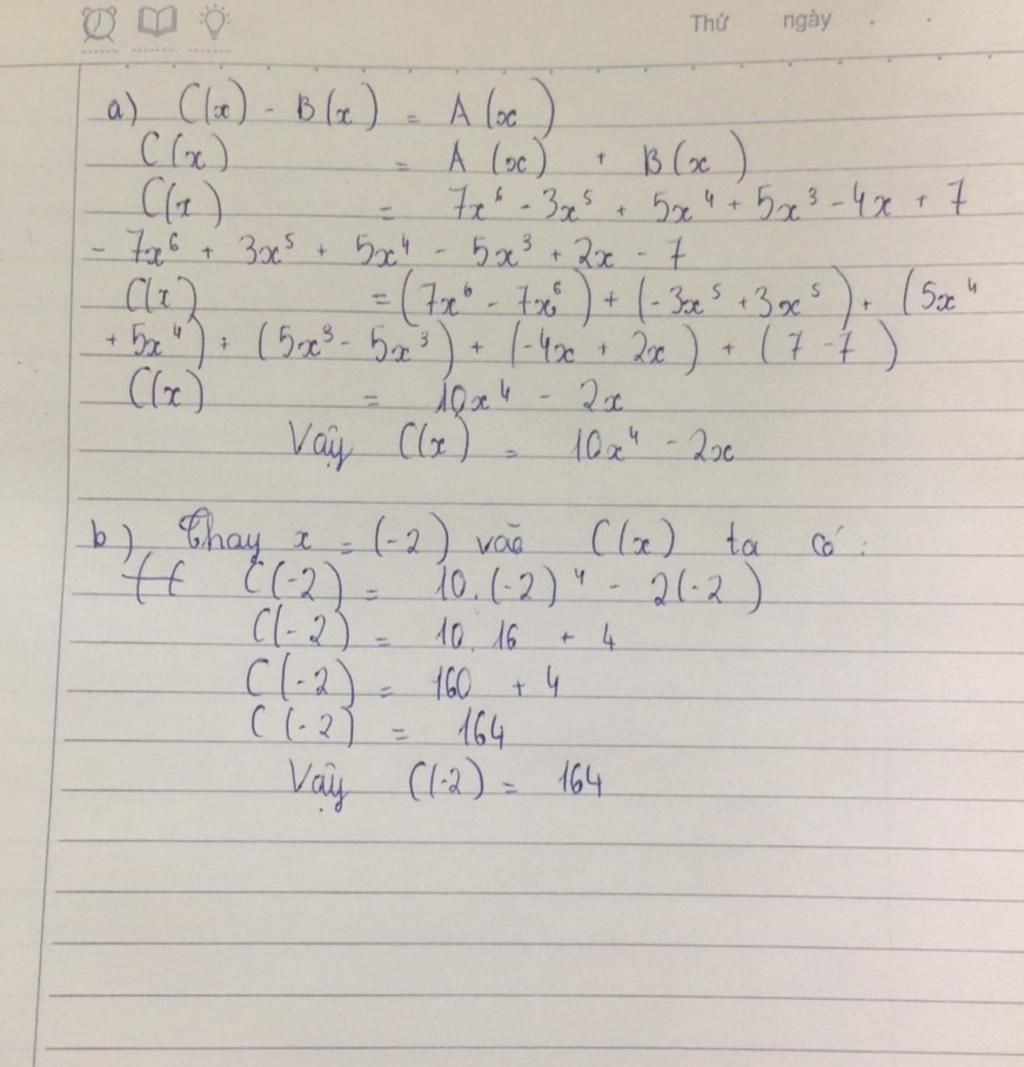 Thứ ngày
a) C(x) - B(x) = A(x)
C(x) = A(x) + B(x)
C(x) = 7x⁶ - 3x⁵ + 5x⁴ + 5x³ - 4x + 7
- 7x⁶ + 3x⁵ + 5x⁴ - 5x³ + 2x - 7
C(x) = (7x⁶ - 7x⁶) + (-3x⁵ + 3x⁵) + (5x⁴
+ 5x⁴) + (5x³ - 5x³) + (-4x + 2x) + (7 - 7)
C(x) = 10x⁴ - 2x
Vậy C(x) = 10x⁴ - 2x
b) Thay x = (-2) vào C(x) ta có:
C(-2) = 10.(-2)⁴ - 2(-2)
C(-2) = 10.16 + 4
C(-2) = 160 + 4
C(-2) = 164
Vậy C(-2) = 164